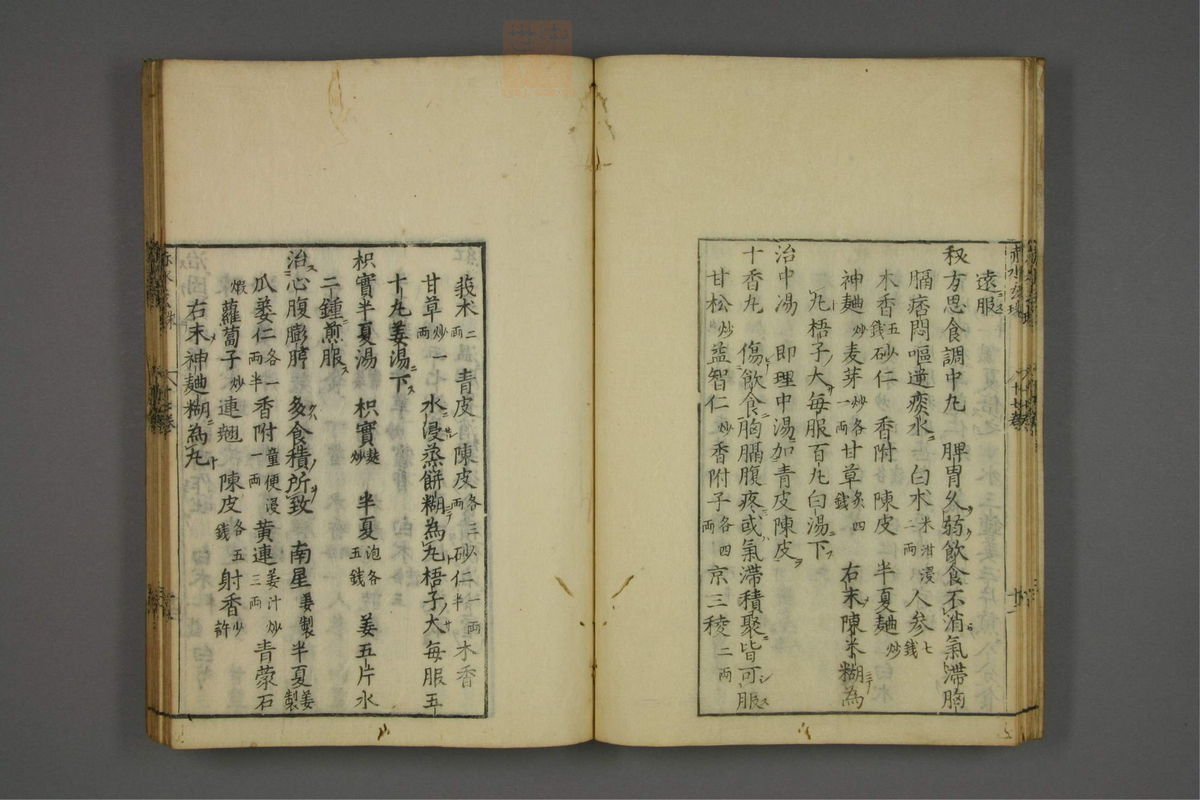 遠服
秘方思食調中丸 脾胃久弱飲食不消氣滯胸
膈痞悶嘔逆痰水 白朮米泔浸二両人参七錢
木香五錢砂仁 香附 陳皮 半夏麯炒
神麯炒麦芽炒各一両甘草炙四錢 右末陳米糊為
丸梧子大每服百丸白湯下
治中湯 即理中湯加青皮陳皮
十香丸 傷飲食胸膈腹疼或氣滯積聚皆可服
甘松炒益智仁炒香附子各四両京三稜二両
莪朮二両青皮陳皮各三両砂仁一両半木香
甘草炒一両水浸蒸餅糊為丸梧子大每服五
十丸姜湯下
枳實半夏湯 枳實麩炒 半夏泡各五錢 姜五片水
二鍾煎服
治心腹膨脝 多食積所致 南星姜製半夏姜製
瓜蔞仁各一両半香附童便浸一両黄連姜汁炒三両青礞石
煅蘿蔔子炒連翹 陳皮各五錢射香少許
右末神麯糊為丸